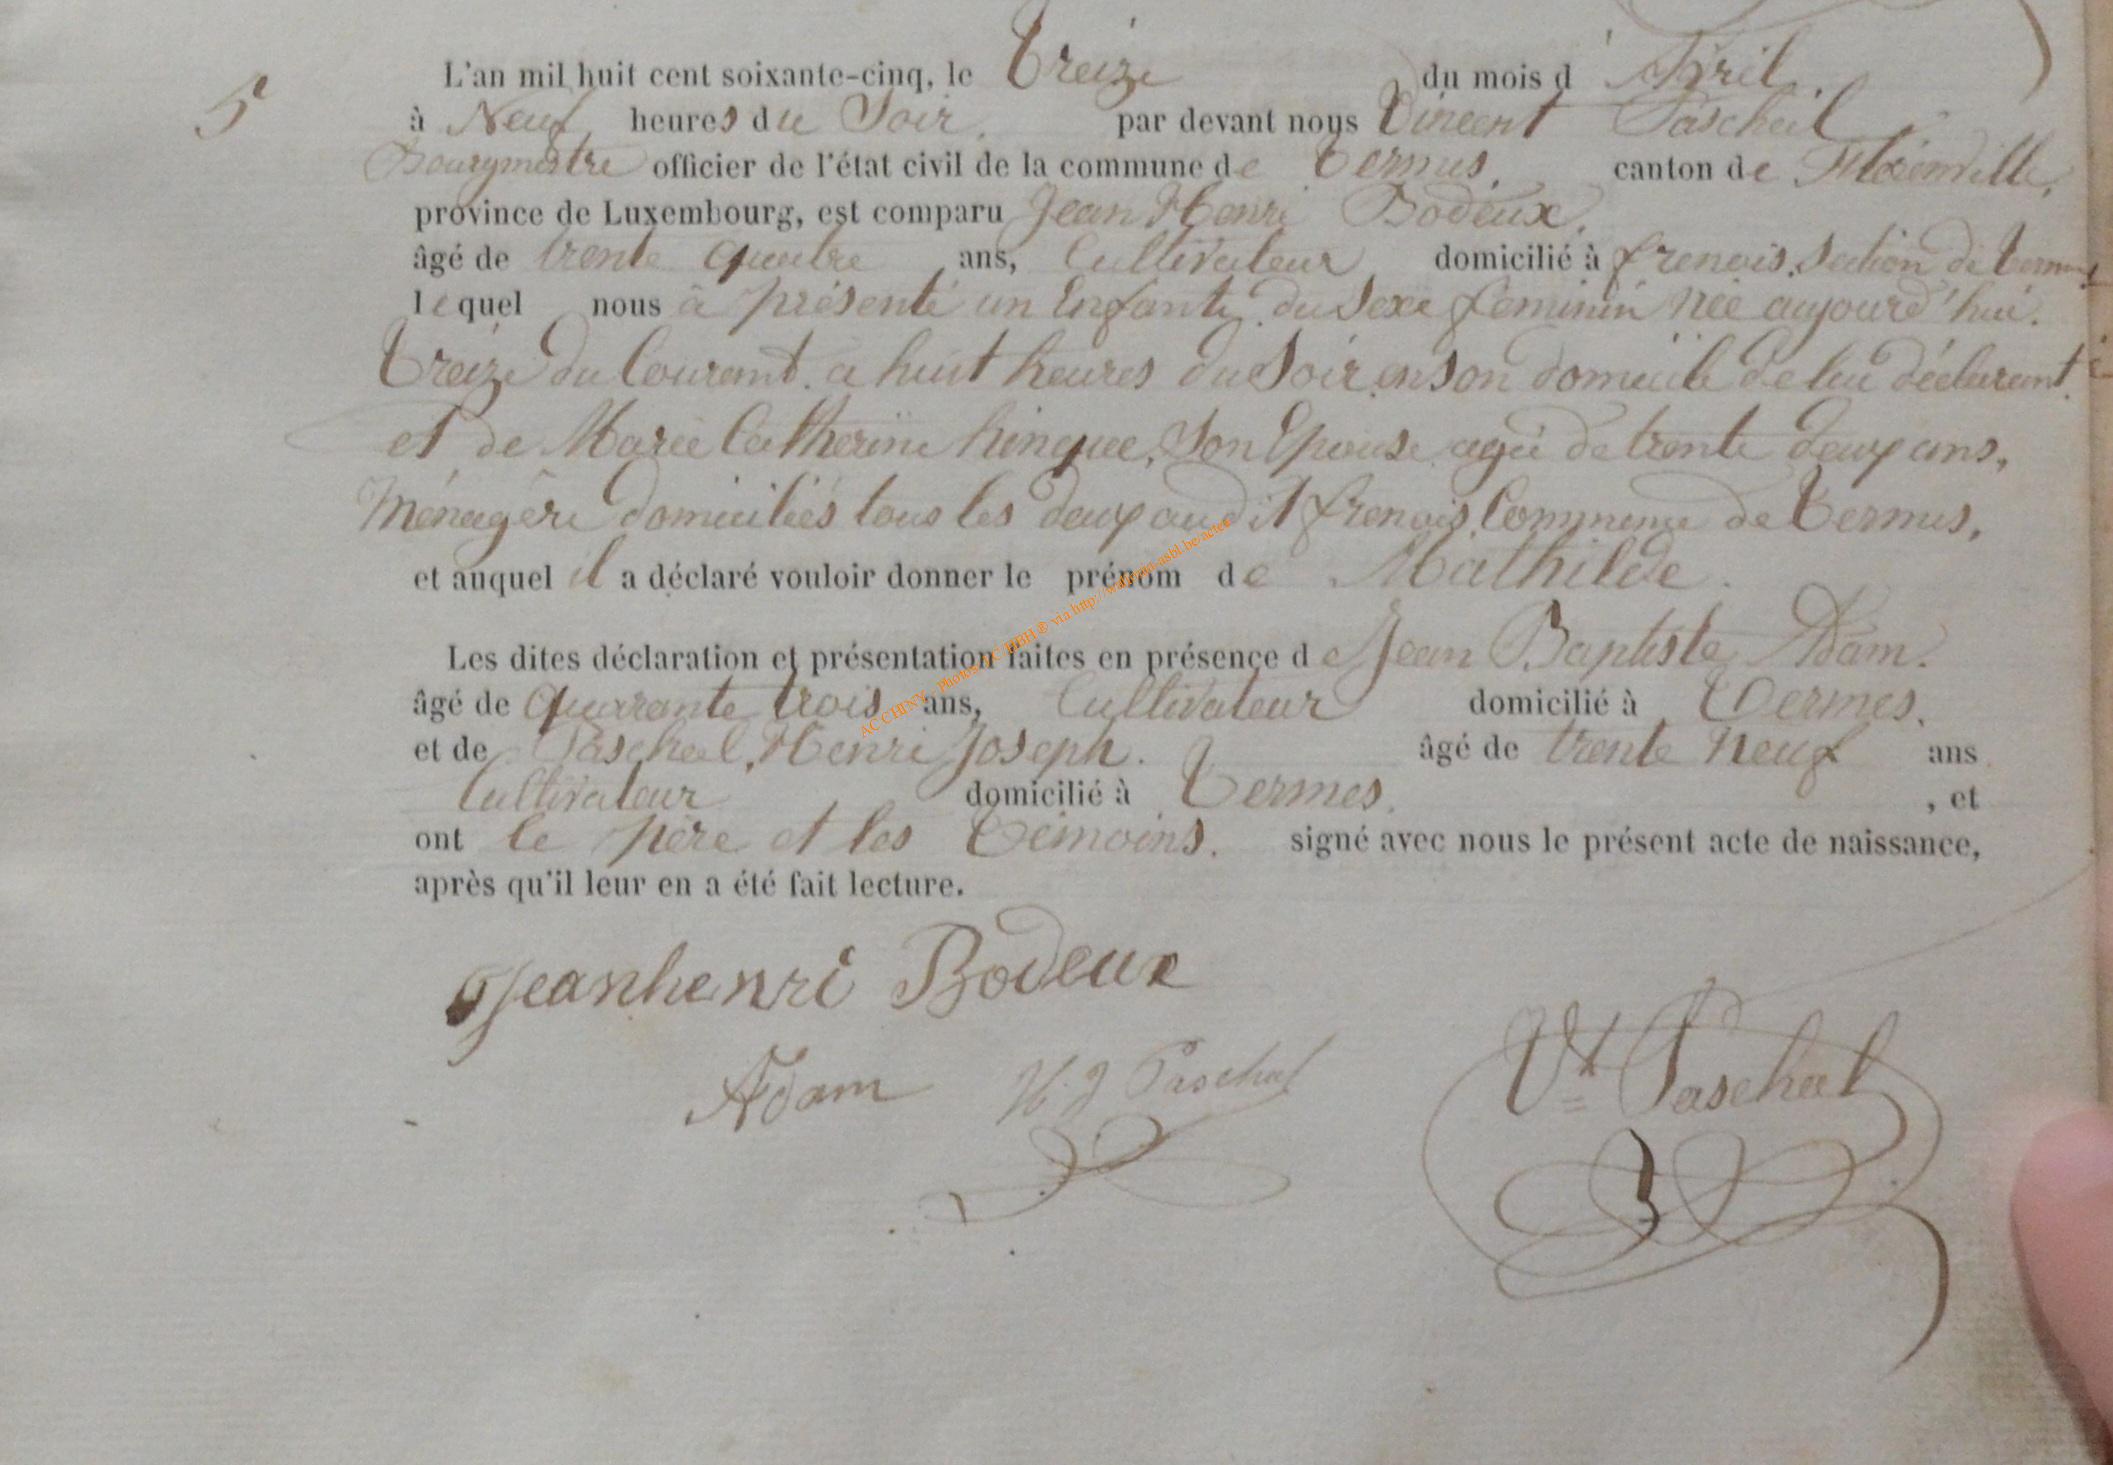 5
L'an mil huit cent soixante-cinq, le Treize du mois d'Avril.
à Neuf heures du Soir. par devant nous Vincent Paschal
Bourgmestre officier de l'état civil de la commune de Termes, canton de Florenville,
province de Luxembourg, est comparu Jean Henri Bodeux,
âgé de trente quatre ans, Cultivateur domicilié à frenois, Section de Termes
lequel nous à présenté un Enfante du Sexe feminin née aujourd'hui.
Treize du Courant. a huit heures du Soir, en son domicile de lui déclarant.
et de Marie Catherine hinque, Son Epouse agée de trente deux ans,
Ménagère domiciliés tous les deux au dit frenois, Commune de Termes,
et auquel il a déclaré vouloir donner le prénom de Mathilde.
Les dites déclaration et présentation faites en présence de Jean Baptiste Adam.
âgé de quarante trois ans, Cultivateur domicilié à Termes.
et de Paschal, Henri Joseph. âgé de trente neuf ans
Cultivateur domicilié à Termes. , et
ont le père et les Témoins. signé avec nous le présent acte de naissance,
après qu'il leur en a été fait lecture.
Jeanhenri Bodeux
Adam H. J Paschal Vt Paschal
AC CHINY - Photos AC-HBH ® via http://www.
asbl.be/actes